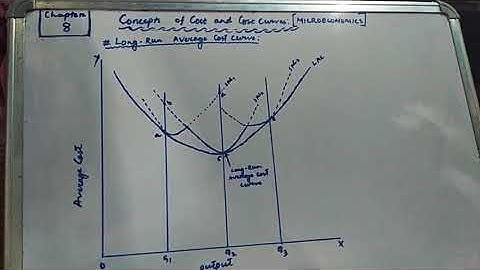 Chapter 8
Concepts of Cost and Cost Curves. [MICROECONOMICS]
# Long-Run Average Cost Curve:
Y
LAC
a
b
c
Long-Run
Average Cost
Curve
Average Cost
0
q1
q2
q3
X
output